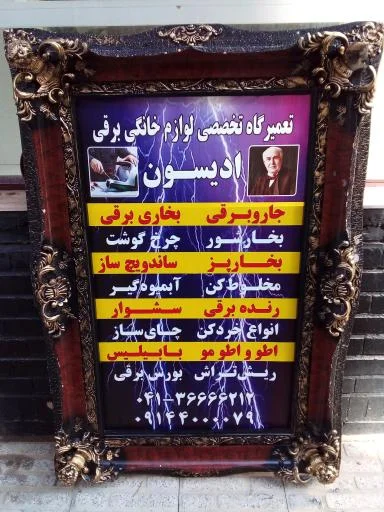 تعمیرگاه تخصصی لوازم خانگی برقی
ادیسون
جاروبرقی بخاری برقی
بخارشور چرخ گوشت
بخارپز ساندویچ ساز
مخلوط کن آبمیوه گیر
رنده برقی سشوار
انواع خردکن چای ساز
اطو و اطو مو بابیلیس
ریش تراش بورس برقی
۰۴۱-۳۶۶۶۶۲۱۲
۰۹۱۴۴۰۰۰۰۷۹